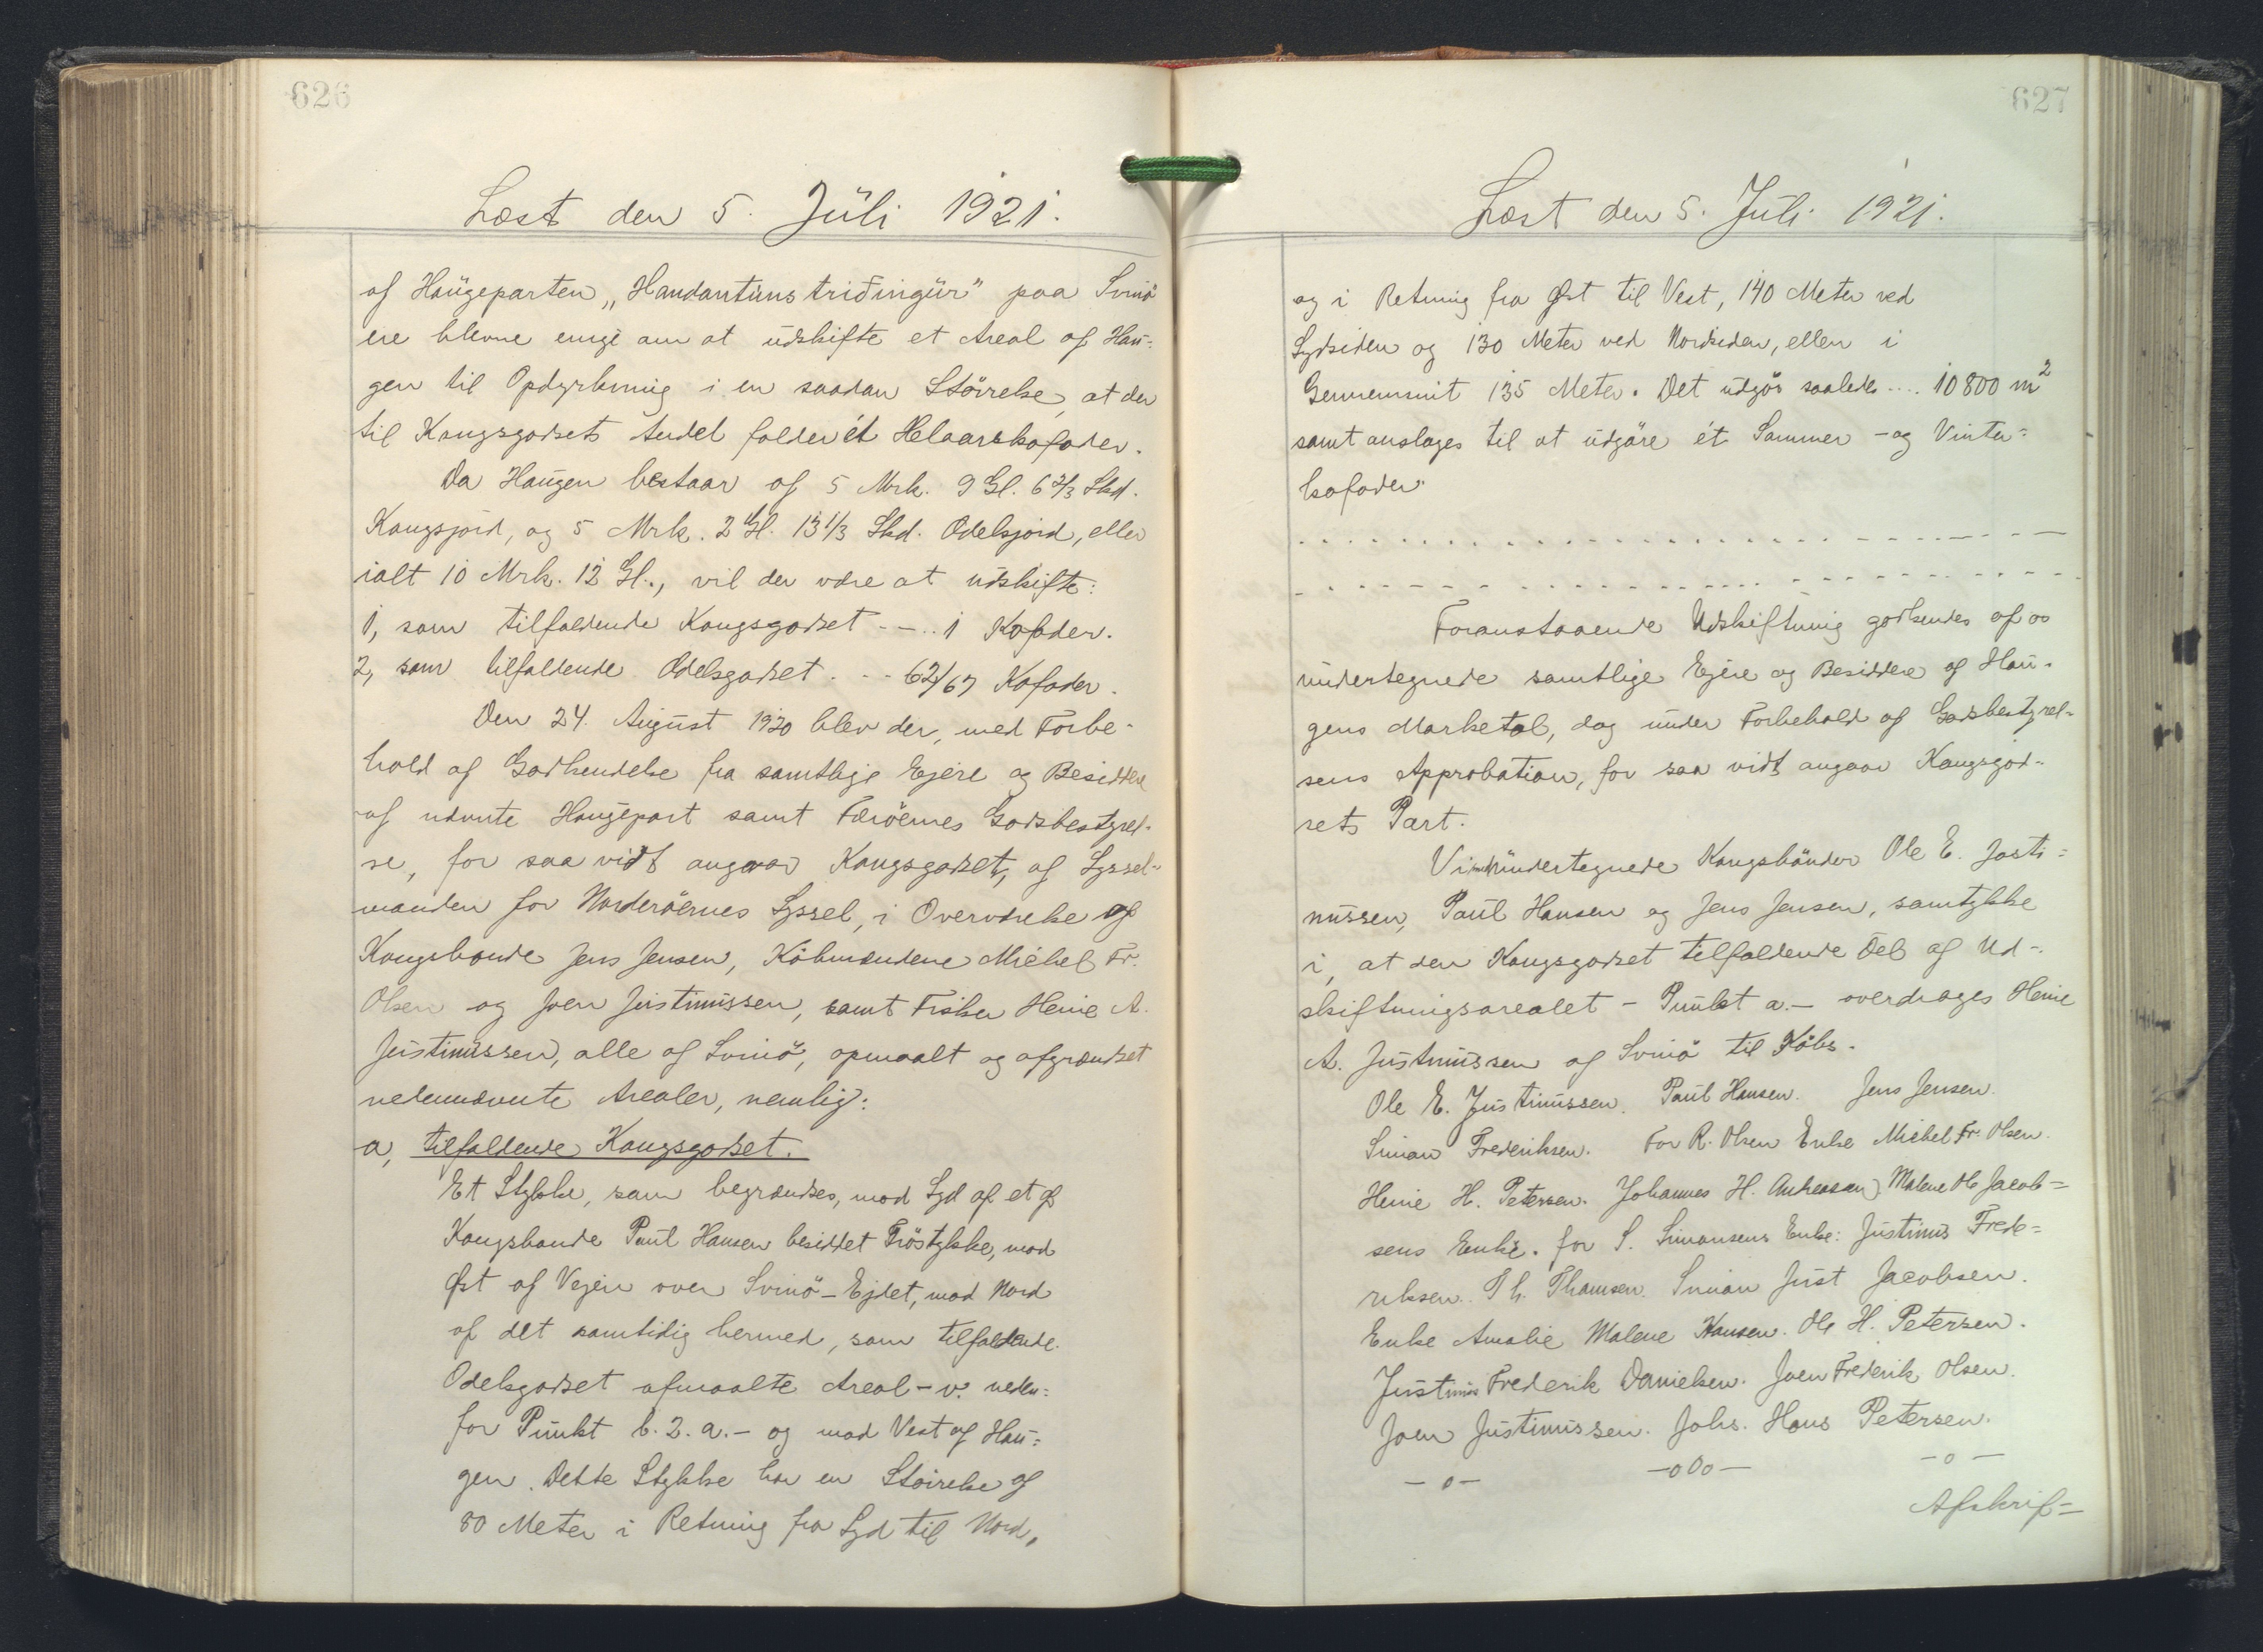 626
Læst den 5. Júli 1921.
af Haúgeparten „Handantúns triðingúr" paa Svinö
ere blevne enige om at údskifte et Areal af Haú=
gen til Opdyrkning i en saadan Störrelse, at der
til Kongsgodsets Andel falder ét Helaarskofoder.
Da Haúgen bestaar af 5 Mrk. 9 Gl. 6 2/3 Skd.
Kongsjord, og 5 Mrk. 2 Gl. 13 1/3 Skd. Odelsjord, eller
ialt 10 Mrk. 12 Gl., vil der være at údskifte:
1, som tilfaldende Kongsgodset - - .. 1 Kofoder.
2, som tilfaldende Odelsgodset . . - 62/67 Kofoder.
Den 24. Aúgúst 1920 blev der, med Forbe-
hold af Godkendelse fra samtlige Ejere og Besiddere
af nævnte Haúgepart samt Færöernes Godsbestyrel-
se, for saa vidt angaar Kongsgodset, af Syssel-
manden for Norderöernes Syssel, i Overværelse af
Kongsbonde Jens Jensen, Köbmændene Michel Fr.
Olsen og Joen Jústinússen, samt Fisker Heine A.
Jústinússen, alle af Svinö, opmaalt og afgrændset
nedennævnte Arealer, nemlig:
a, tilfaldende Kongsgodset.
Et Stykke, som begrændses, mod Syd af et af
Kongsbonde Poul Hansen besiddet Tröstykke, mod
Øst af Vejen over Svinö-Ejdet, mod Nord
af det samtidig hermed, som tilfaldende
Odelsgodset afmaalte Areal - v. neden=
for Púnkt b. 2. a. - og mod Vest af Haú=
gen. Dette Stykke har en Störrelse af
80 Meter i Retning fra Syd til Nord,
627
Læst den 5. Júli 1921.
og i Retning fra Øst til Vest, 140 Meter ved
Sydsiden og 130 Meter ved Nordsiden, eller i
Gennemsnit 135 Meter. Det údgör saaledes .... 10800 m2
samt anslages til at údgöre ét Sommer - og Vinter=
kofoder.
Foranstaaende Udskiftning godkendes af os
úndertegnede samtlige Ejere og Besiddere af Haú-
gens Marketal, dog únder Forbehold af Godsbestyrel-
sens Approbation, for saa vidt angaar Kongsgod-
sets Part.
Vi med úndertegnede Kongsbönder Ole E. Josti=
nússen, Poúl Hansen og Jens Jensen, samtykke
i, at den Kongsgodset tilfaldende Del af Ud-
skiftningsarealet - Púnkt a. - overdrages Heine
A. Jústinússen af Svinö til Köbs.
Ole E. Jústinússen. Poúl Hansen. Jens Jensen.
Simon Frederiksen. For R. Olsen Enke Michel Fr. Olsen.
Heine H. Petersen. Johannes H. Andreasen. Malene Ol. Jacob=
sens Enke. for S. Simonsens Enke: Jústinús Frede=
riksen. Th. Thomsen. Simon Júst Jacobsen.
Enke Amalie Malene Hansen. Ole H. Petersen.
Jústinús Frederik Danielsen. Joen Frederik Olsen.
Joen Jústinússen. Johs. Hans Petersen.
- o - -oOo- - o -
Afskrif=